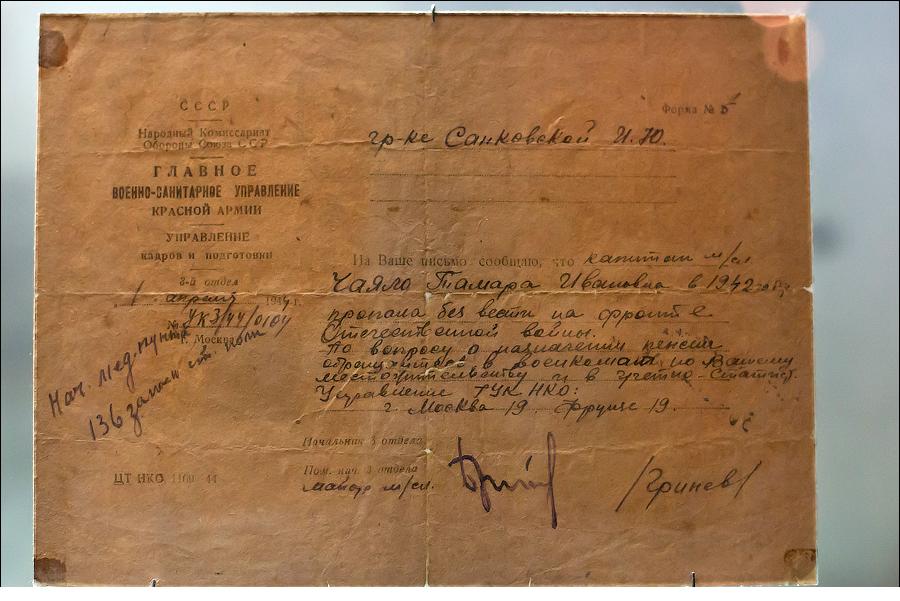 СССР
Народный Комиссариат
Обороны Союза ССР
ГЛАВНОЕ
ВОЕННО-САНИТАРНОЕ УПРАВЛЕНИЕ
КРАСНОЙ АРМИИ
УПРАВЛЕНИЕ
кадров и подготовки
3-й отдел
1 апреля 1944 г.
№ УК3/44/0104
г. Москва
Нач. мед. пункта
136 запасн.
ЦТ НКО 44
Форма №
гр-ке Санковской И. Ю.
На Ваше письмо сообщаю, что капитан м/сл.
Чаяло Тамара Ивановна в 1942 году
пропала без вести на фронте
Отечественной войны.
По вопросу о назначении пенсии
обращайтесь в военкомат по Вашему
местожительству и в учетно-статист.
Управление ГУК НКО:
г. Москва 19 Фрунзе 19.
Начальник 3 отдела
Пом. нач. 3 отдела
майор м/сл.
/Гринев/